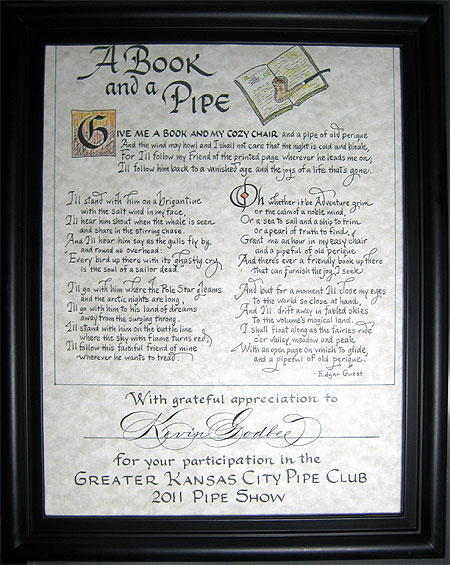 A Book
and a
Pipe
Give me a book and my cozy chair and a pipe of old perique
And the wind may howl and I shall not care that the night is cold and bleak,
For I'll follow my friend of the printed page wherever he leads me on;
I'll follow him back to a vanished age and the joys of a life that's gone.
I'll stand with him on a brigantine
with the salt wind in my face,
I'll hear him shout when the whale is seen
and share in the stirring chase.
And I'll hear him say as the gulls fly by
and round us overhead:
"Every bird up there with its ghastly cry
is the soul of a sailor dead."
I'll go with him where the Pole Star gleams
and the arctic nights are long,
I'll go with him to his land of dreams
away from the surging throng.
I'll stand with him on the battle line
where the sky with flame turns red;
I'll follow this faithful friend of mine
wherever he wants to tread.
Oh whether it be Adventure grim
or the calm of a noble mind,
Or a sea to sail and a ship to trim,
or a pearl of truth to find,
Grant me an hour in my easy chair
and a pipeful of old perique
And there's ever a friendly book up there
that can furnish the joy I seek
And but for a moment I'll close my eyes
to the world so close at hand,
And I'll drift away in fabled skies
to the volume's magical land.
I shall float along as the fairies ride
o'er valley, meadow and peak
With an open page on which to glide,
and a pipeful of old perique.
- Edgar Guest
With grateful appreciation to
Kevin Godbee
for your participation in the
Greater Kansas City Pipe Club
2011 Pipe Show